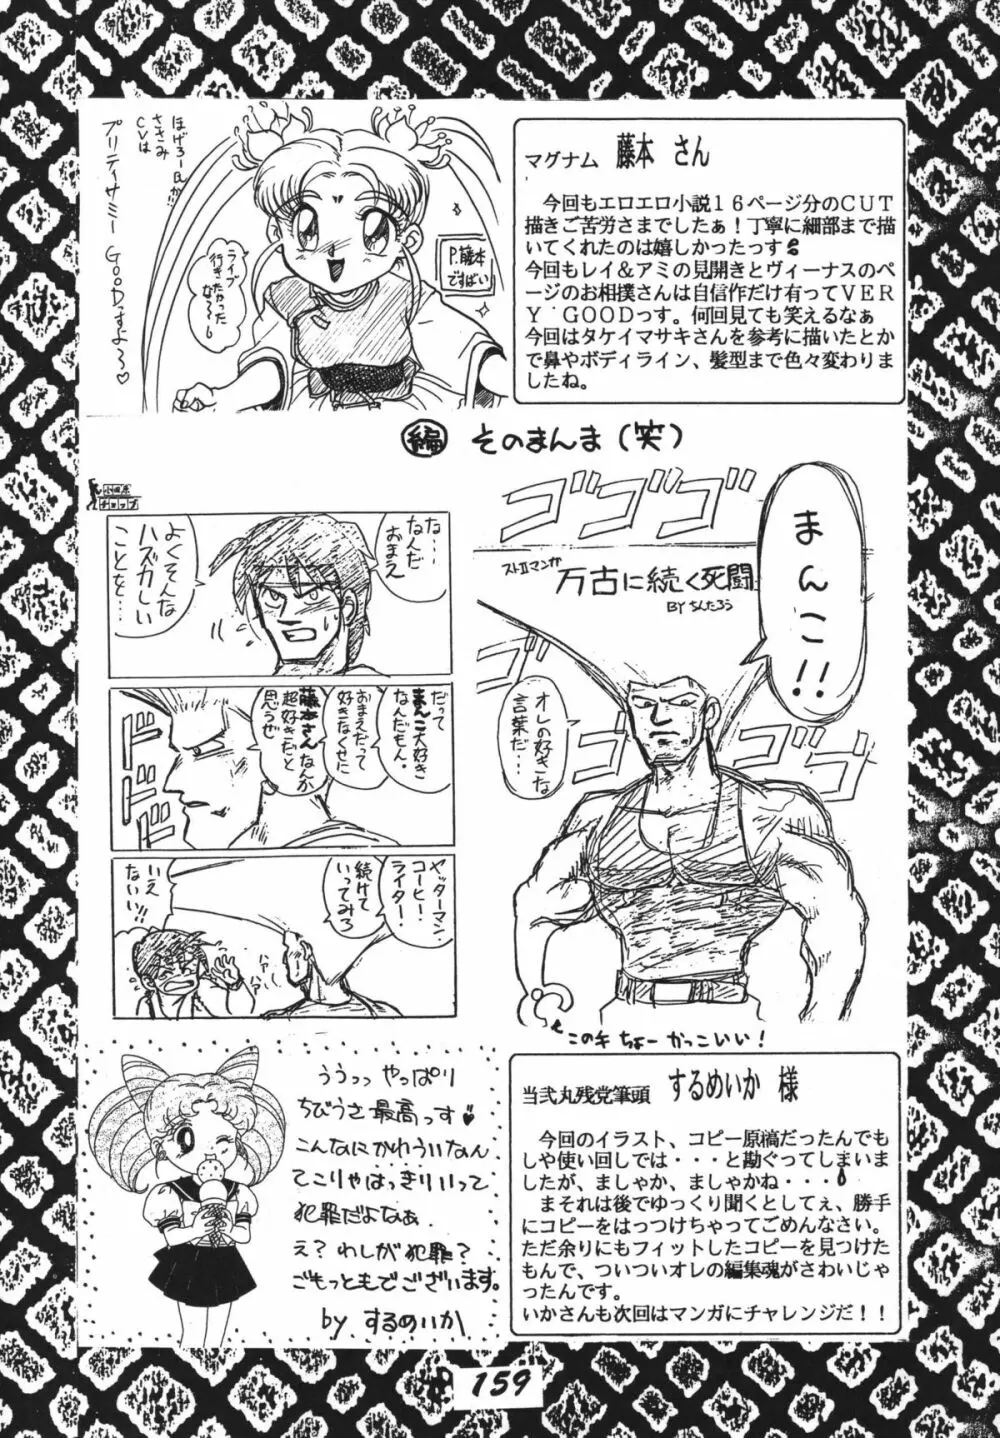 ほげろーBが
さきみ
CVは
プリティサミー GOODっすよ〜♡
ライブ
行きたかった
な〜〜
P.藤本
ですばい
マグナム 藤本 さん
今回もエロエロ小説16ページ分のCUT
描きご苦労さまでしたぁ!丁寧に細部まで描
いてくれたのは嬉しかったっす
今回もレイ&アミの見開きとヴィーナスのペ
ージのお相撲さんは自信作だけ有ってVER
Y GOODっす。何回見ても笑えるなぁ
今回はタケイマサキさんを参考に描いたとか
で鼻やボディライン、髪型まで色々変わりま
したね。
編 そのまんま(笑)
ゴゴゴ
まんこ!!
ストIIマンガ
万古に続く死闘
BY ちんたろう
オレの好きな
言葉だ・・・
ゴゴ
ゴゴ
チョップ
な・・・
なんだ
おまえ
よくそんな
ハズカしい
ことを・・・
だって
まんこ大好き
なんだもん。
おまえだって
好きなくせに
藤本さんなんか
超好きだと
思うぜ
ドドド
ヤッターマン
コーヒー!
ライター!
続けて
いってみろ
いえ
ないい!!
ハァー
ハァー
このキ ちょー かっこいい!
ううっっ やっぱり
ちびうさ最高っす♥
こんなにかわういなん
てこりゃはっきりいって
犯罪だよなぁ.
え? わしが犯罪?
ごもっともでございます。
by するめいか
当弐丸残党筆頭 するめいか 様
今回のイラスト、コピー原稿だったんでも
しや使い回しでは・・・と勘ぐってしまいま
したが、ましゃか、ましゃかね・・・
まそれは後でゆっくり聞くとしてぇ、勝手
にコピーをはっつけちゃってごめんなさい。
ただ余りにもフィットしたコピーを見つけた
もんで、ついついオレの編集魂がさわいじゃ
ったんです。
いかさんも次回はマンガにチャレンジだ!!
159